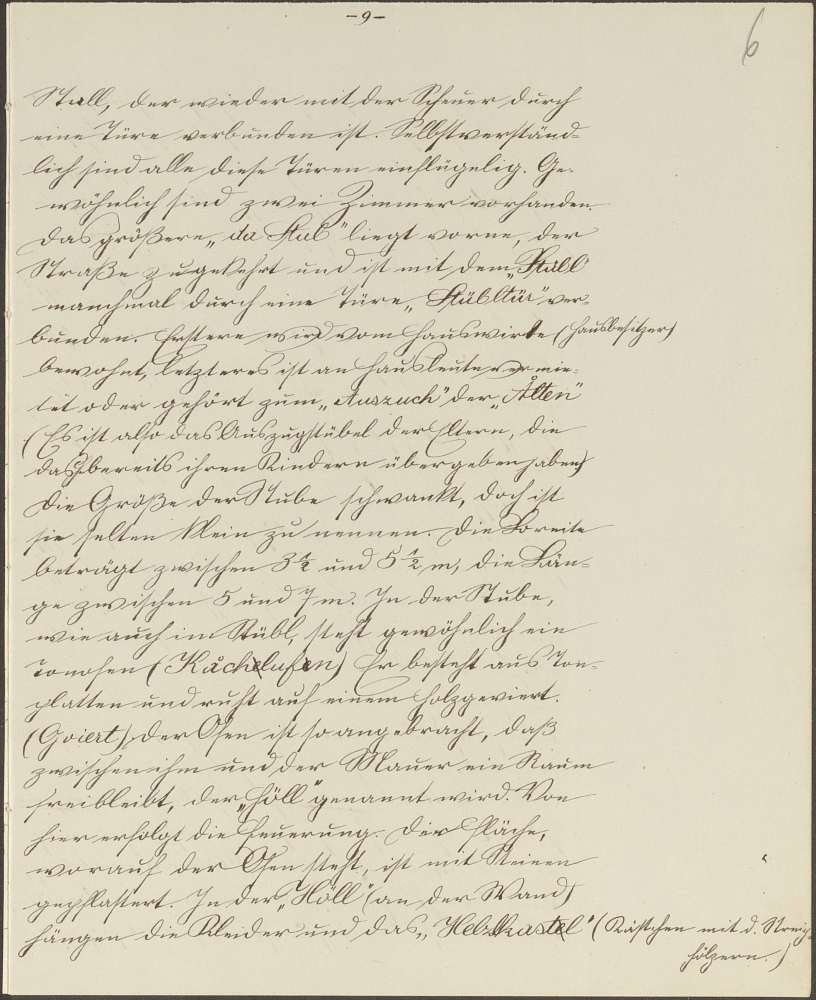 -9-
6
Stall, der wieder mit der Scheuer durch
eine Türe verbunden ist. Selbstverständ-
lich sind alle diese Türen einflügelig. Ge-
wöhnlich sind zwei Zimmer vorhanden.
Das größere, „da Stub" liegt vorne, der
Straße zugekehrt und ist mit dem „Stüll"
manchmal durch eine Türe, „Stübltür" ver-
bunden. Erstere wird vom Hauswirte (Hausbesitzer)
bewohnt, letzteres ist an Hausleute vermie-
tet oder gehört zum „Auszuch" der „Ålten"
(Es ist also das Auszugstübel der Eltern, die
das bereits ihren Kindern übergeben haben)
Die Größe der Stube schwankt, doch ist
sie selten klein zu nennen. Die Breite
beträgt zwischen 3½ und 5½ m, die Län-
ge zwischen 5 und 7 m. In der Stube,
wie auch im Stübl, steht gewöhnlich ein
Tonofen (Kåchelufen) Er besteht aus Ton-
platten und ruht auf einem Holzgeviert.
(Gviert) Der Ofen ist so angebracht, daß
zwischen ihm und der Mauer ein Raum
freibleibt, der „Höll" genannt wird. Von
hier erfolgt die Feuerung. Die Fläche,
worauf der Ofen steht, ist mit Steinen
gepflastert. In der „Höll" (an der Wand)
hängen die Kleider und das „ (Kästchen mit d. Streich-
hölzern.)